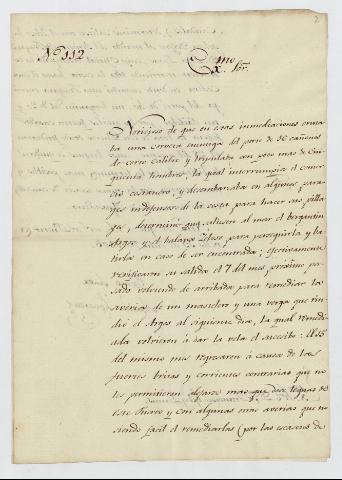 2
Nº 112
Exmo. Sor.
Noticioso de que en estas inmediaciones cruza-
ba una Corveta enemiga del porte de 36 cañones
de corto Calibre y tripulada con poco mas de Cin-
quenta hombres, la qual interrumpia el comer-
cio costanero, y desembarcaba en algunos para-
ges indefensos de la costa para hacer sus pilla-
ges, determiné que saliesen al mar el bergantin
Argos y el balaux Zeloso para perseguirla y ba-
tirla en caso de ser encontrada; efectivamente
verificaron su salida el 7 del mes proximo pa-
sado volviendo de arribada para remediar la
averia de un mastelero y una verga que rin-
dió el Argos al siguiente dia, la qual remedi-
ada volvieron á dar la vela el succesibo: El 15
del mismo mes regresaron á causa de los
fuertes brisas y corrientes contrarias que no
les permitieron alejarse mas que diez leguas de
este Puerto y con algunas otras averias que no
siendo facil el remediarlas (por las escaseses de